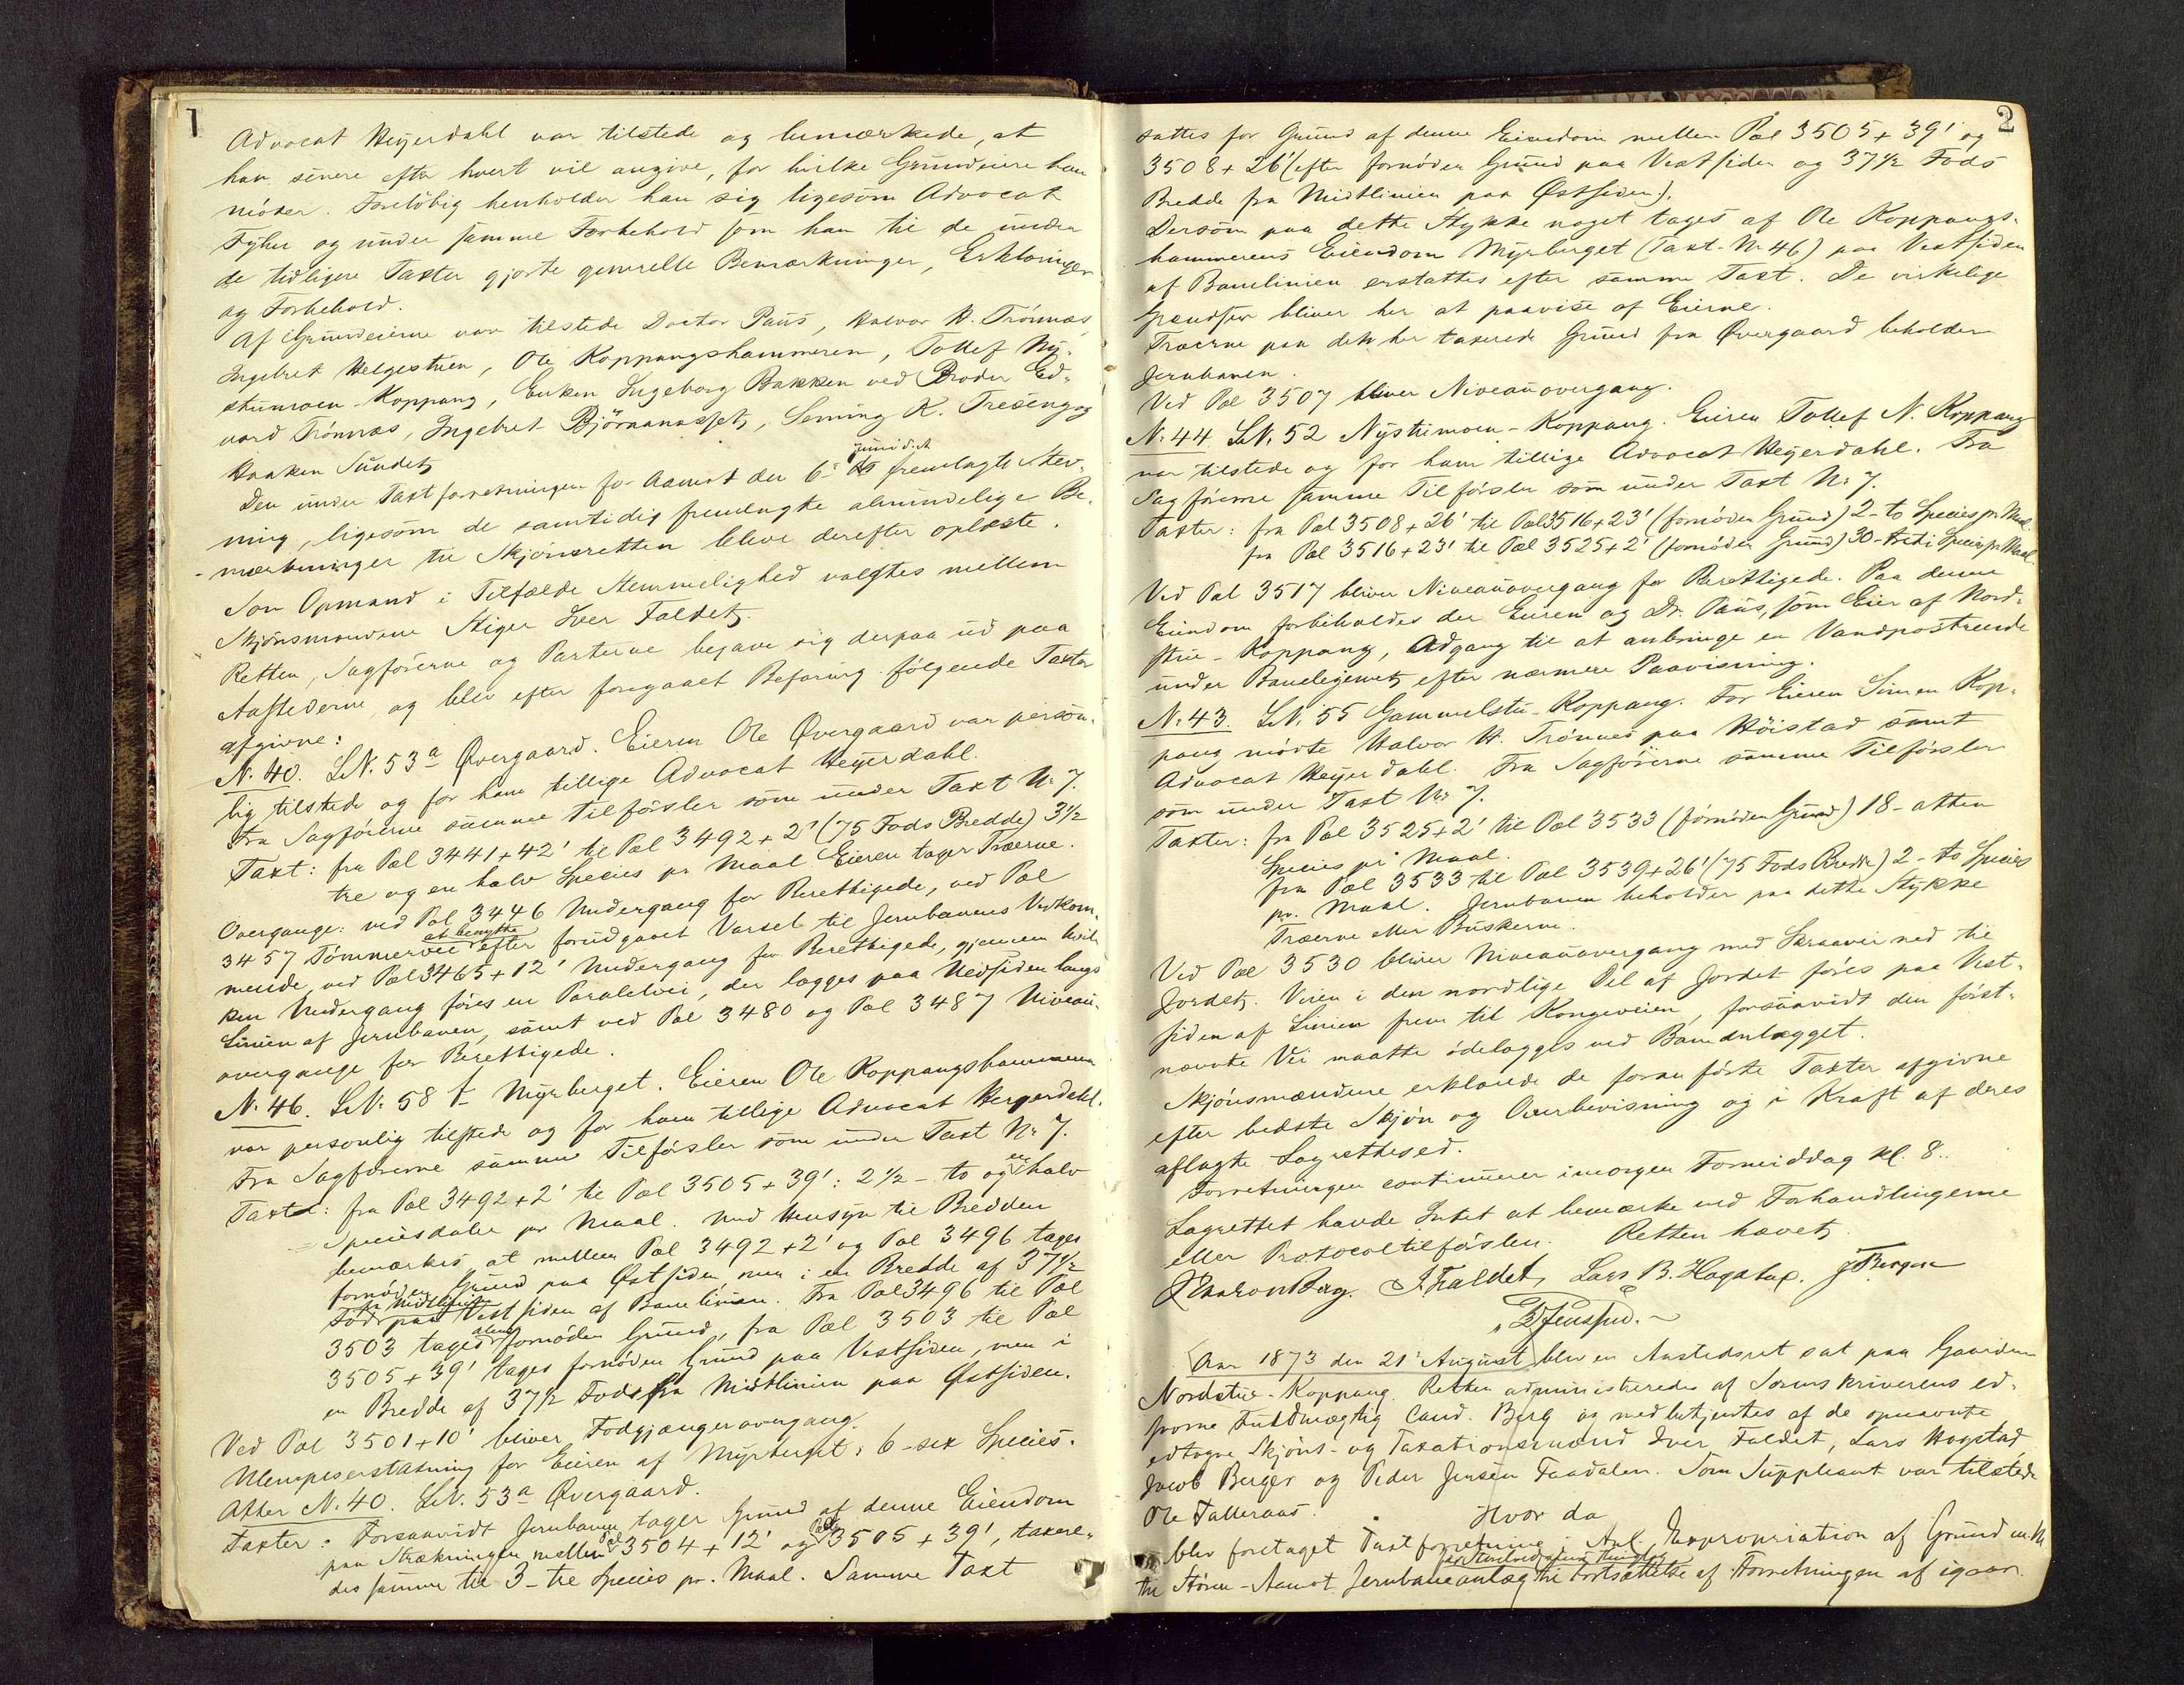 1
Advocat Heyerdahl var tilstede og bemærkede, at
han senere efter hvert vil angive, for hvilke Grundeiere han
möder. Forelöbig henholder han sig ligesom Advocat
og under samme Forbehold som han til de under
de tidligere Taxter gjorte generelle Bemærkninger, Erklæringer
og Forbehold.
Af Grundeierne var tilstede Doctor Paus, Halvor H. Trönnæs
Ingebret Helgestuen, Ole Koppangshammeren, Tollef Ny-
stumoen-Koppang, Enken Ingeborg Bakken ved Broder Ed-
vard Trönnæs, Ingebret Björnanæsset, Seming K. Træseng og
Haaken Sundet
Den under Taxtforretningen for Aamot den 6te Juni d. A. fremlagte Stev-
ning, ligesom de samtidig fremlagte almindelige Be-
mærkninger til Skjönsretten bleve derefter oplæste.
Som Opmand i Tilfælde Stemmelighed valgtes mellem
Skjönsmændene Stiger Iver Faldet.
Retten, Sagförerne og Parterne begave sig derpaa ud paa
Aastederne, og blev efter foregaaet Befaring følgende Taxter
afgivne:
N: 40. LN. 53a Øvergaard. Eieren Ole Øvergaard var person-
lig tilstede og for ham tillige Advocat Heyerdahl.
Fra Sagförerne samme Tilförsler som under Taxt N: 7.
Taxt: fra Pæl 3441+42' til Pæl 3492+2' (75 Fods Bredde) 3½
tre og en halv Species pr Maal Eieren tager Træerne.
Overgange: ved Pæl 3446 Undergang for Berettigede, ved Pæl
3457 Tömmervei at benytte efter forudgaaet Varsel til Jernbanens Vedkom-
mende, ved Pæl 3465+12' Undergang for Berettigede, gjennem hvil-
ken Undergang föres en Paralelvei, der lægges paa Nedsiden langs
Linien af Jernbanen, samt ved Pæl 3480 og Pæl 3487 Niveau-
overgange for Berettigede.
N: 46. LN: 58 f Myrberget. Eieren Ole Koppangshammeren
var personlig tilstede og for ham tillige Advocat Heyerdahl.
Fra Sagförerne samme Tilförsler som under Taxt N: 7.
Taxt: fra Pæl 3492+2' til Pæl 3505+39': 2½ - to og en halv
Speciesdaler pr Maal. Med Hensyn til Bredden
bemærkes, at mellem Pæl 3492+2' og Pæl 3496 tages
fornöden Grund paa Østsiden, men i en Bredde af 37½
Fod fra Midtlinien paa Vestsiden af Banelinien. Fra Pæl 3496 til Pæl
3503 tages alene fornöden Grund, fra Pæl 3503 til Pæl
3505+39' tages fornöden Grund paa Vestsiden, men i
en Bredde af 37½ Fod fra Midtlinien paa Østsiden.
Ved Pæl 3501+10' bliver Fodgjængerovergang.
Ulempeserstatning for Eieren af Myrberget: 6 - sex Species.
Atter N. 40. LN. 53a Øvergaard.
Taxter: Forsaavidt Jernbanen tager Grund af denne Eiendom
paa Strækningen mellem Pæl 3504+12' og Pæl 3505+39', taxere-
des samme til 3 - tre Species pr. Maal. Samme Taxt
2
sattes for Grund af denne Eiendom mellem Pæl 3505+39' og
3508+26' (efter fornöden Grund paa Vestsiden og 37½ Fods
Bredde fra Midtlinien paa Østsiden).
Dersom paa dette Stykke noget tages af Ole Koppangs-
hammerens Eiendom Myrberget (Taxt-N: 46) paa Vestsiden
af Banelinien erstattes efter samme Taxt. De virkelige
Grændser bliver her at paavise af Eierne.
Træerne paa det her taxerede Grund fra Øvergaard beholder
Jernbanen.
Ved Pæl 3507 bliver Niveauovergang.
N: 44. LN. 52 Nystumoen-Koppang. Eieren Tollef N. Koppang
var tilstede og for ham tillige Advocat Heyerdahl. Fra
Sagförerne samme Tilförsler som under Taxt N: 7.
Taxter: fra Pæl 3508+26' til Pæl 3516+23' (fornöden Grund) 2 - to Species pr. Maal
fra Pæl 3516+23' til Pæl 3525+2' (fornöden Grund) 30 - treti Species pr. Maal
Ved Pæl 3517 bliver Niveauovergang for Berettigede. Paa denne
Eiendom forbeholdes der Eieren og Dr. Paus, som Eier af Nord-
stu-Koppang, Adgang til at anbringe en Vandpostrende
under Banelegemet, efter nærmere Paavisning.
N: 43. LN. 55 Gammelstu-Koppang. For Eieren Simen Kop-
pang mödte Halvor H. Trönnes paa Höistad samt
Advocat Heyerdahl. Fra Sagförerne samme Tilförsler
som under Taxt N: 7.
Taxter: fra Pæl 3525+2' til Pæl 3533 (fornöden Grund) 18 - atten
Species pr Maal.
fra Pæl 3533 til Pæl 3539+26' (75 Fods Bredde) 2 - to Species
pr. Maal. Jernbanen beholder paa dette Stykke
Træerne eller Buskerne.
Ved Pæl 3530 bliver Niveauovergang med Skraavei ned til
Jordet. Veien i den nordlige Del af Jordet föres paa Vest-
siden af Linien frem til Kongeveien, forsaavidt den först-
nævnte Vei maatte ödelægges ved Baneanlægget.
Skjönsmændene erklærede de foranförte Taxter afgivne
efter bedste Skjön og Overbevisning og i Kraft af deres
aflagte Lagrettesed.
Forretningen continuerer imorgen Formiddag Kl. 8..
Lagrettet havde Intet at bemærke ved Forhandlingerne
eller Protocoltilförslen. Retten hævet.
Berg. I. Faldet, Lars B. Hagstad. J Berger
P Jensen.
Aar 1873 den 21de August blev en Aastedsret sat paa Gaarden
Nordstu-Koppang. Retten administreredes af Sorenskriverens ed-
svorne Fuldmægtig Cand. Berg og medbetjentes af de opnævnte
edtagne Skjöns- og Taxationsmænd Iver Faldet, Lars Hagstad
Jacob Berger og Peder Jensen Faadalen. Som Suppleant var tilstede
Ole Falleraas.
Hvor da
blev foretaget Taxtforretning i Anl. Expropriation af Grund m.M
til Stören-Aamot Jernbaneanlæg til Fortsættelse af Forretningen af igaar.